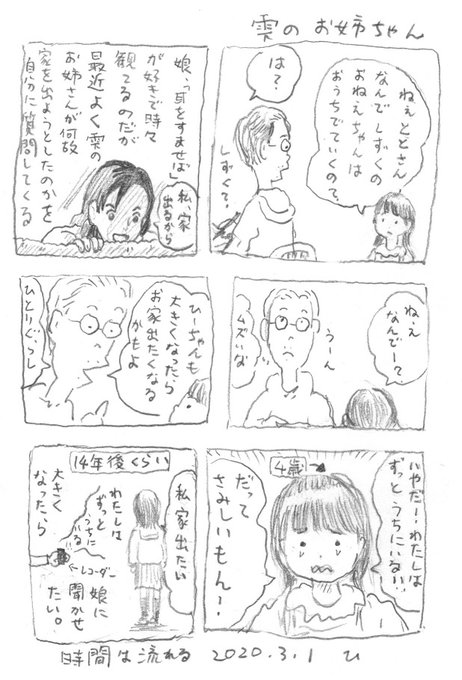 雫のお姉ちゃん
ねぇととさん
なんでしずくの
おねえちゃんは
おうちでていくの?
は?
しずく?
娘、「耳をすませば」
が好きで時々
観てるのだが
最近よく雫の
お姉さんが何故
家を出ようとしたのかを
自分に質問してくる
私、家
出るから
ねぇ
なんでー?
うーん
ムズいな
ひーちゃんも
大きくなったら
お家出たくなる
かもよ
ひとりぐらし
いやだー!わたしは
ずっとうちにいるい!
4歳→
だって
さみしいもんー!
14年後くらい
私家出たい
わたしは
ずっと
うちに
いる
←レコーダー
大きく
なったら
娘に
聞かせ
たい。
時間は流れる 2020.3.1 ひ